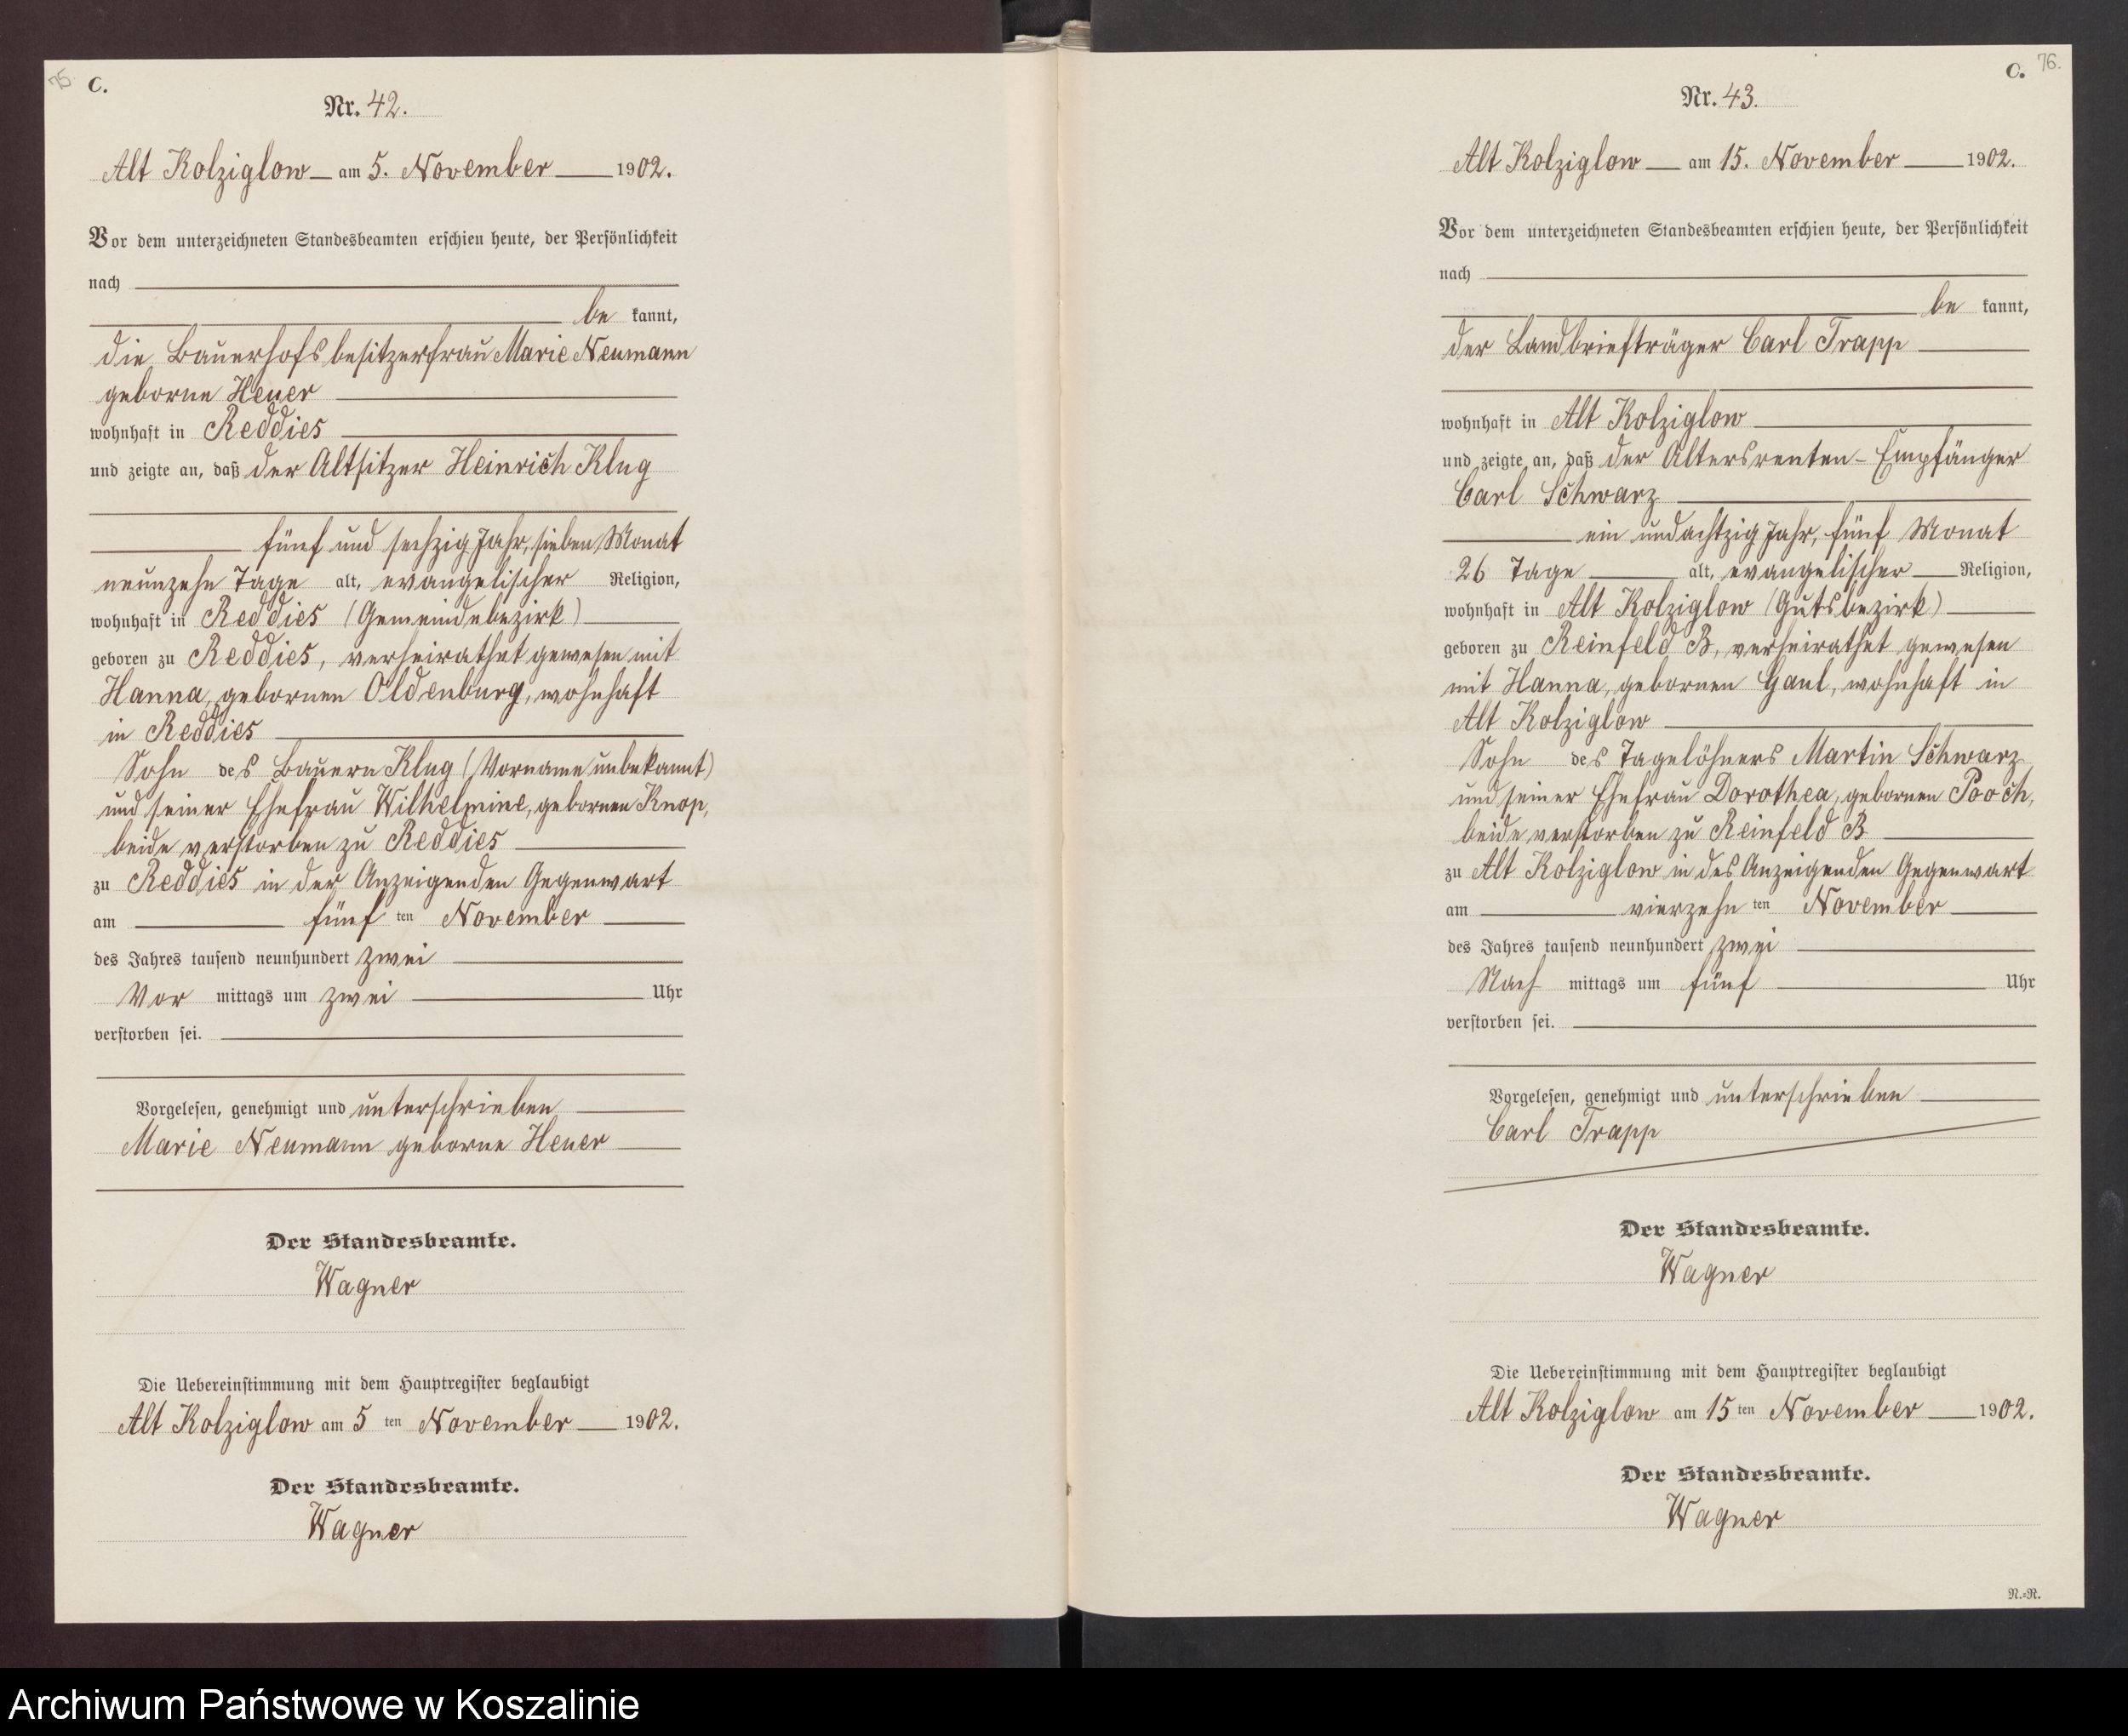 75
C.
Nr. 42.
Alt Kolziglow am 5. November 1902.
Vor dem unterzeichneten Standesbeamten erschien heute, der Persönlichkeit
nach
be kannt,
die Bauerhofsbesitzerfrau Marie Neumann
geborne Heuer
wohnhaft in Reddies
und zeigte an, daß der Altsitzer Heinrich Klug
fünf und sechzig Jahr, sieben Monat
neunzehn Tage alt, evangelischer Religion,
wohnhaft in Reddies (Gemeindebezirk)
geboren zu Reddies, verheirathet gewesen mit
Hanna, gebornen Oldenburg, wohnhaft
in Reddies
Sohn des Bauern Klug (Vorname unbekannt)
und seiner Ehefrau Wilhelmine, gebornen Knop,
beide verstorben zu Reddies
zu Reddies in der Anzeigenden Gegenwart
am fünf ten November
des Jahres tausend neunhundert zwei
Vor mittags um zwei Uhr
verstorben sei.
Vorgelesen, genehmigt und unterschrieben
Marie Neumann geborne Heuer
Der Standesbeamte.
Wagner
Die Uebereinstimmung mit dem Hauptregister beglaubigt
Alt Kolziglow am 5 ten November 1902.
Der Standesbeamte.
Wagner
C. 76.
Nr. 43.
Alt Kolziglow am 15. November 1902.
Vor dem unterzeichneten Standesbeamten erschien heute, der Persönlichkeit
nach
be kannt,
der Landbriefträger Carl Trapp
wohnhaft in Alt Kolziglow
und zeigte an, daß der Altersrenten-Empfänger
Carl Schwarz
ein und achtzig Jahr, fünf Monat
26 Tage alt, evangelischer Religion,
wohnhaft in Alt Kolziglow (Gutsbezirk)
geboren zu Reinfeld B, verheirathet gewesen
mit Hanna, gebornen Gaul, wohnhaft in
Alt Kolziglow
Sohn des Tagelöhners Martin Schwarz
und seiner Ehefrau Dorothea, gebornen Pooch,
beide verstorben zu Reinfeld B
zu Alt Kolziglow in des Anzeigenden Gegenwart
am vierzehn ten November
des Jahres tausend neunhundert zwei
Nach mittags um fünf Uhr
verstorben sei.
Vorgelesen, genehmigt und unterschrieben
Carl Trapp
Der Standesbeamte.
Wagner
Die Uebereinstimmung mit dem Hauptregister beglaubigt
Alt Kolziglow am 15 ten November 1902.
Der Standesbeamte.
Wagner
N.=R.
Archiwum Państwowe w Koszalinie